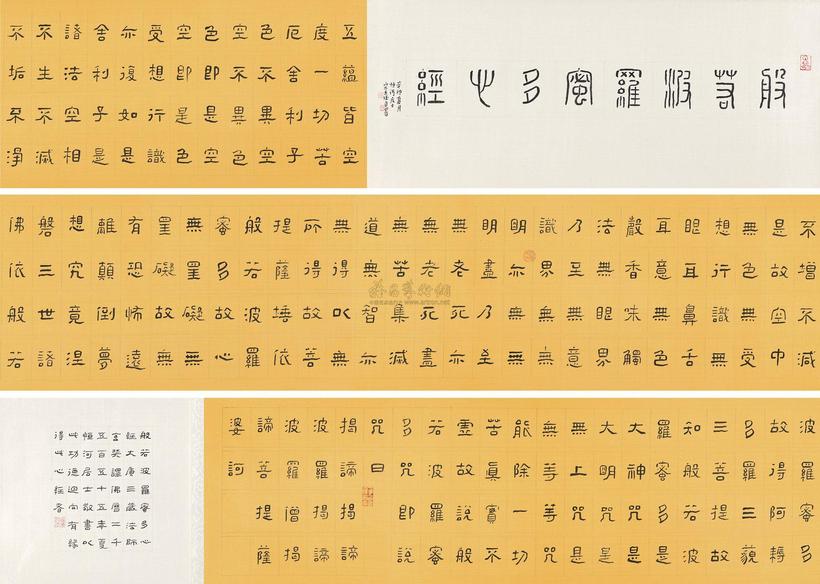 般若波羅蜜多心經
五蘊皆空
度一切苦
厄舍利子
色不異空
空不異色
色即是空
空即是色
受想行識
亦復如是
舍利子是
諸法空相
不生不滅
不垢不淨
不增不減
是故空中
無色無受
想行識無
眼耳鼻舌
身意無色
聲香味觸
法無眼界
乃至無意
識界無無
明亦無無
明盡乃至
無老死亦
無老死盡
無苦集滅
道無智亦
無得以無
所得故菩
提薩埵依
般若波羅
蜜多故心
無罣礙無
罣礙故無
有恐怖遠
離顛倒夢
想究竟涅
槃三世諸
佛依般若
波羅蜜多
故得阿耨
多羅三藐
三菩提故
知般若波
羅蜜多是
大神咒是
大明咒是
無上咒是
無等等咒
能除一切
苦真實不
虛故說般
若波羅蜜
多咒即說
咒曰
揭諦揭諦
波羅揭諦
波羅僧揭
諦菩提薩
婆訶
般若波羅蜜多心
經大唐三藏法師
玄奘譯佛曆二千
五百五十五年夏
恒河居士敬書以
此功德迴向有緣
得此心經者